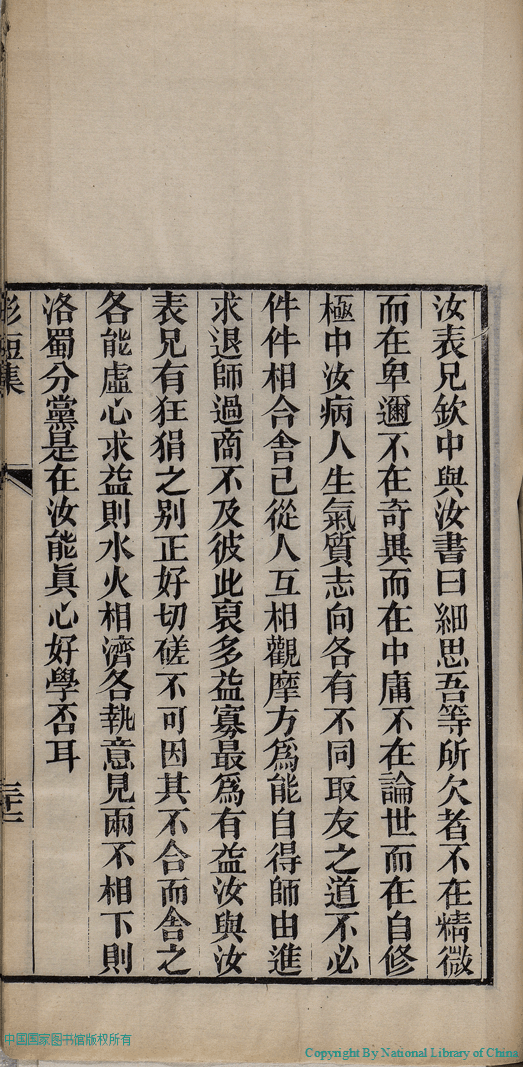 汝表兄欽中與汝書曰細思吾等所欠者不在精微
而在卑邇不在奇異而在中庸不在論世而在自修
極中汝病人生氣質志向各有不同取友之道不必
件件相合舍己從人互相觀摩方爲能自得師由進
求退師過商不及彼此裒多益寡最爲有益汝與汝
表兄有狂狷之别正好切磋不可因其不合而舍之
各能虛心求益則水火相濟各執意見兩不相下則
洛蜀分黨是在汝能眞心好學否耳
短集
中国国家图书馆版权所有
Copyright By National Library of China